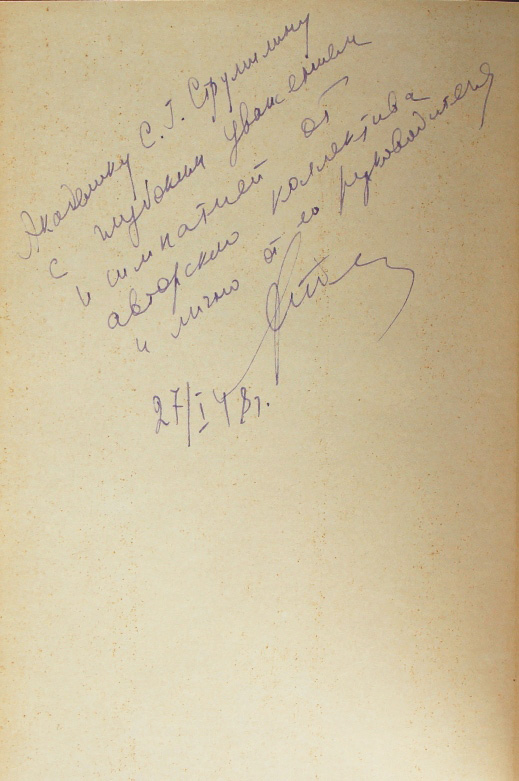 Академику С. Г. Струмилину
с глубоким уважением
и симпатией от
авторского коллектива
и лично от его руководителя
27/I 48г.